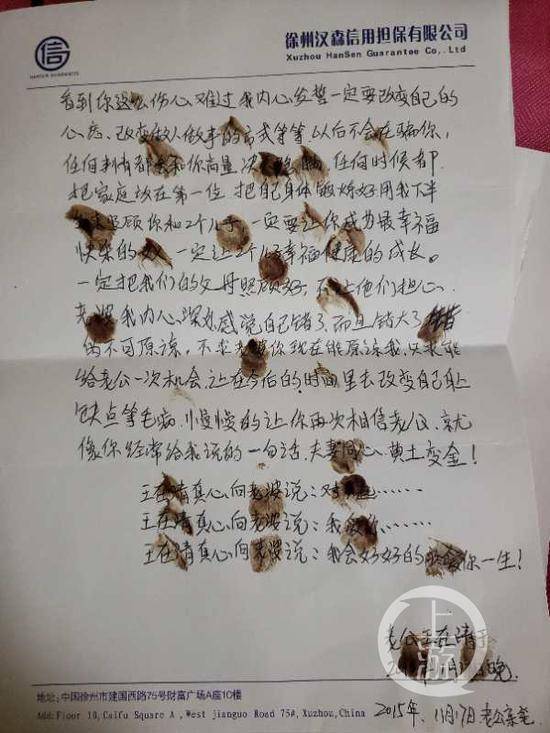 信
HANSEN GUARANTEE
徐州汉森信用担保有限公司
Xuzhou HanSen Guarantee Co,.Ltd
看到你这么伤心难过我内心发誓一定要改变自己的
心态、改变做人做事的方式等等以后不会在骗你,
任何事情都会和你商量 任何时候都
把家庭放在第一位 把自己身体锻炼好用我下半
照顾你和2个儿子 一定要让你成为最幸福
快乐的女人 一定让2个儿子幸福健康的成长。
一定把我们的父母照顾好, 不让他们担心.
老婆我内心深处感觉自己错了而且错大了
的不可原谅, 不求老婆你现在能原谅我,只求能
给老公一次机会,让在今后的时间里去改变自己身上
缺点等毛病,慢慢的让你再次相信老公,就
像你经常给我说的一句话,夫妻同心、黄土变金!
王在清真心向老婆说:对不起……
王在清真心向老婆说:我爱你……
王在清真心向老婆说:我会好好的照顾你一生!
老公王在清于
月 晚
地址:中国徐州市建国西路75号财富广场A座10楼
Add:Floor 10,Caifu Square A ,West jianguo Road 75#,Xuzhou,China
2015年、11月17日老公亲笔
上游